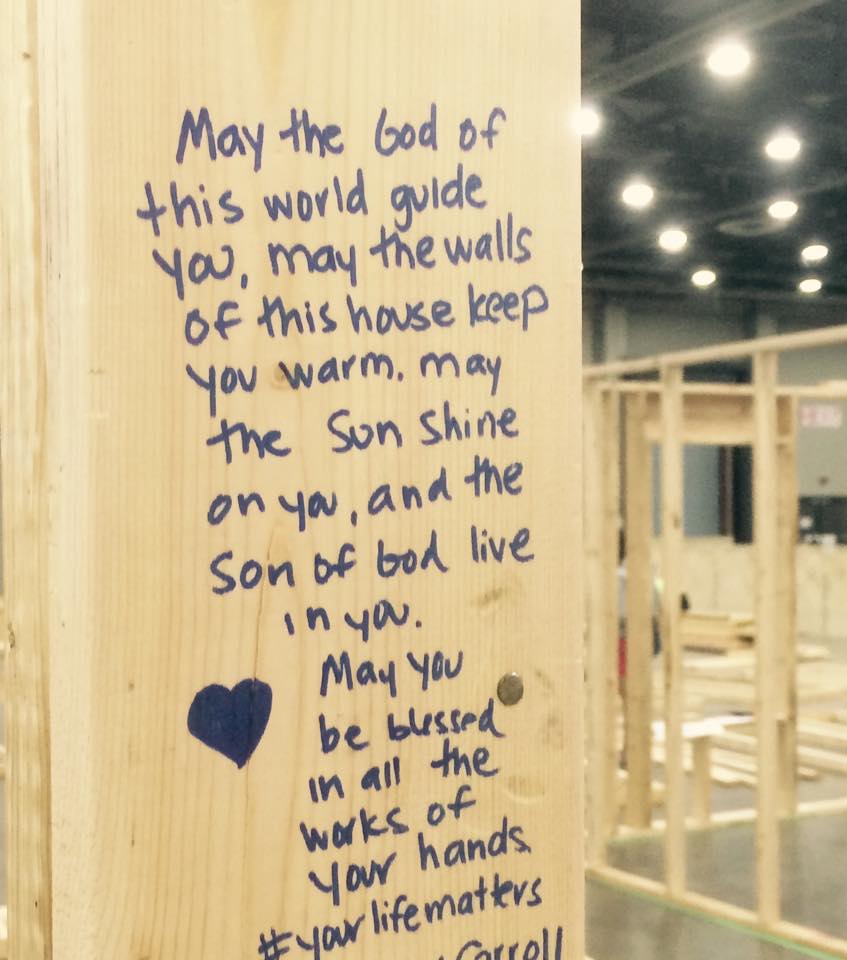 May the God of
this world guide
you, may the walls
of this house keep
you warm. may
the Sun shine
on you, and the
Son of God live
in you.
May you
be blessed
in all the
works of
your hands
#yourlifematters
Carroll